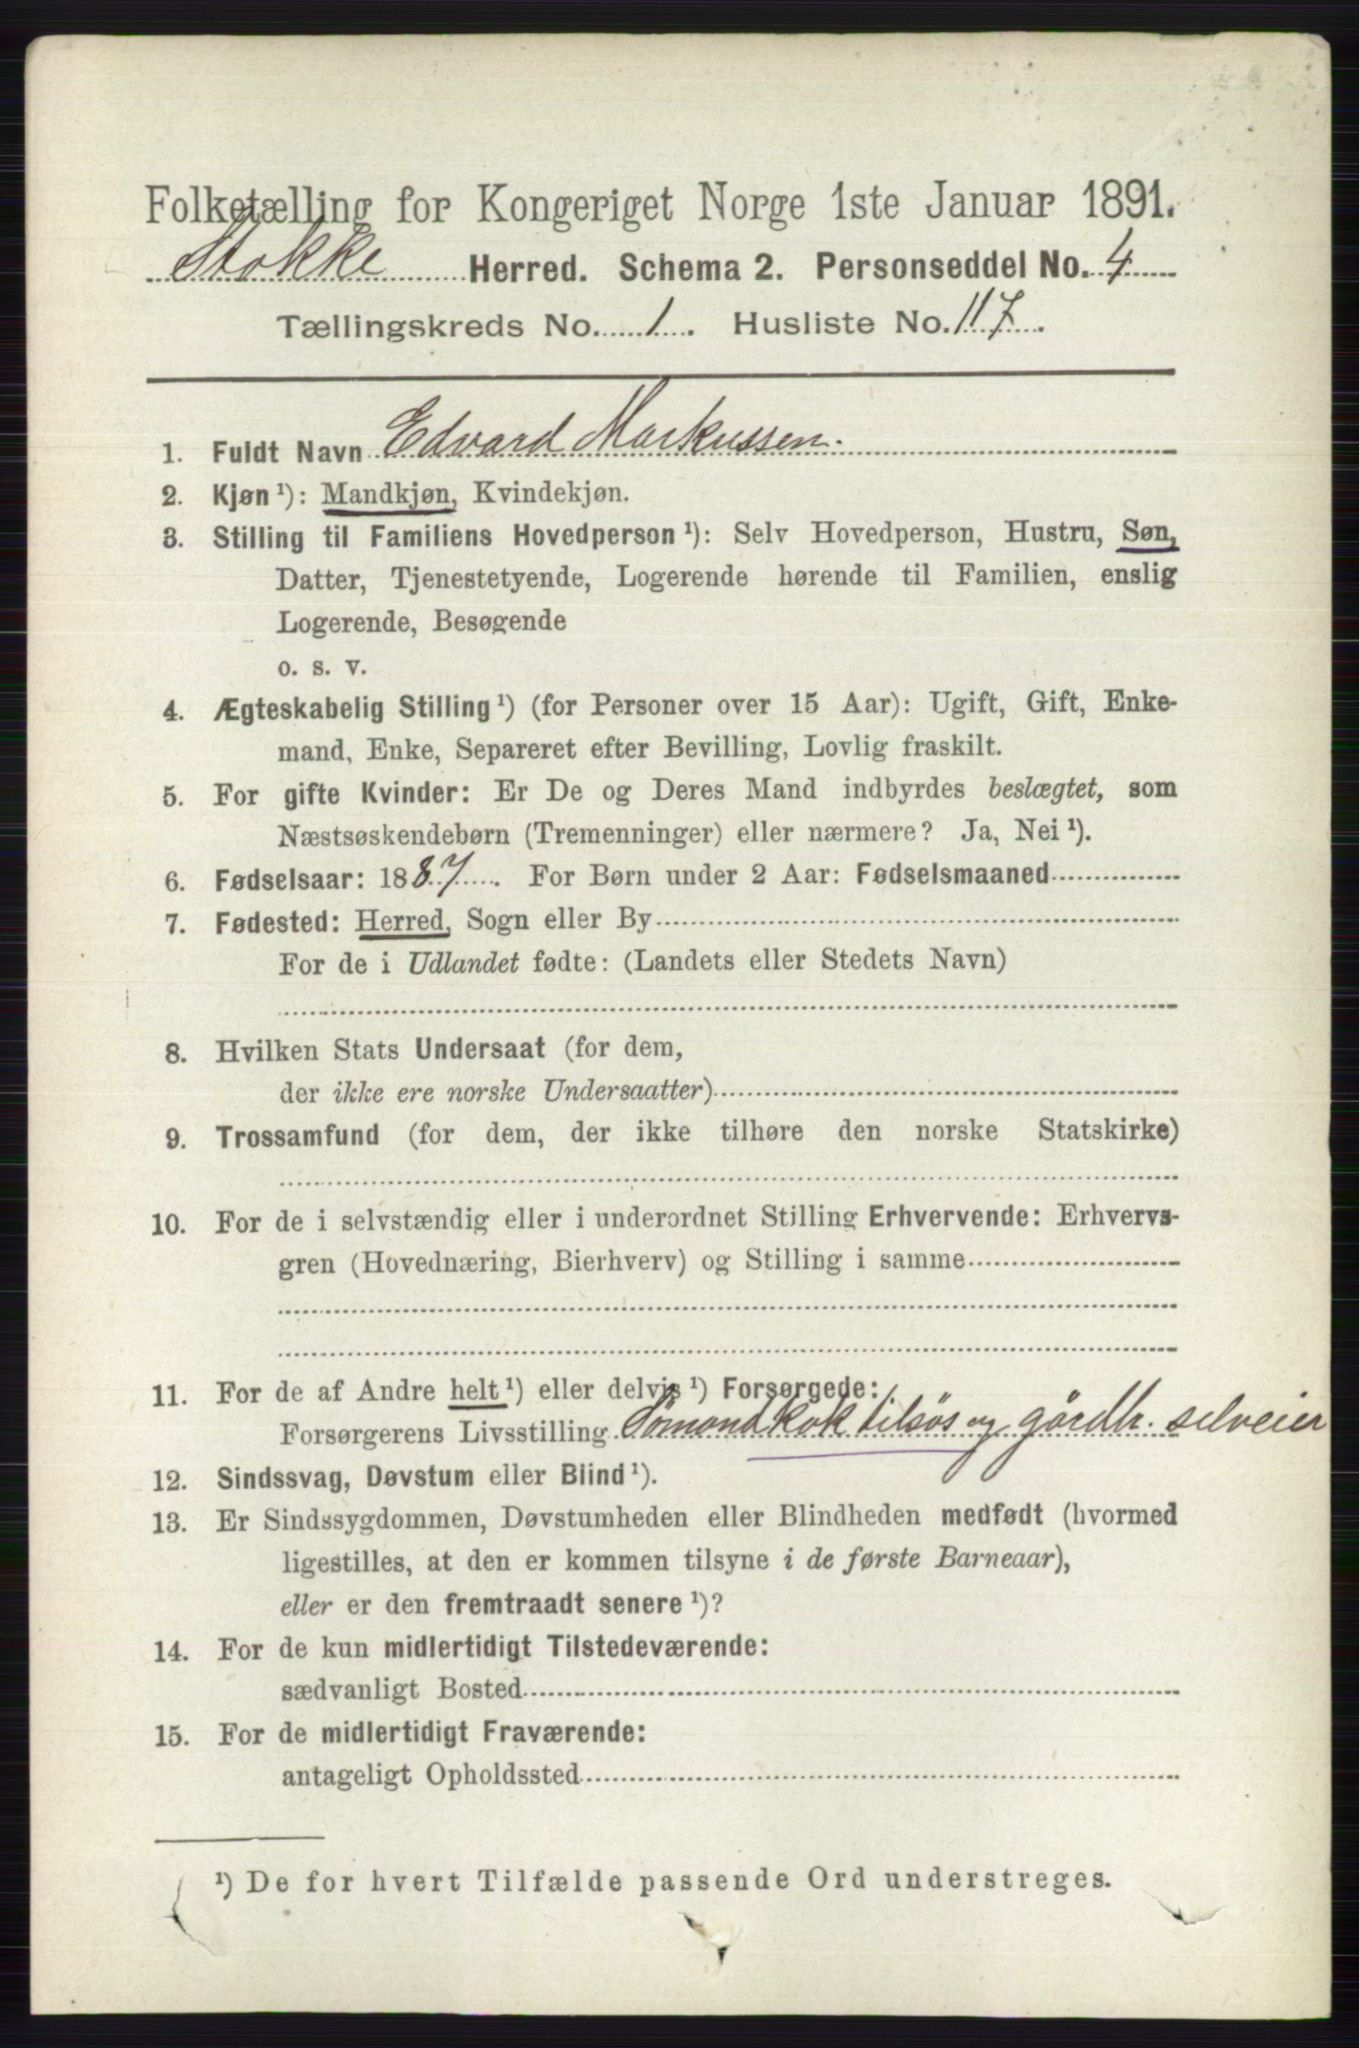 Folketælling for Kongeriget Norge 1ste Januar 1891.
Stokke Herred. Schema 2. Personseddel No. 4
Tællingskreds No. 1. Husliste No. 117.
1. Fuldt Navn Edvard Markussen.
2. Kjøn¹): Mandkjøn, Kvindekjøn.
3. Stilling til Familiens Hovedperson¹): Selv Hovedperson, Hustru, Søn,
Datter, Tjenestetyende, Logerende hørende til Familien, enslig
Logerende, Besøgende
o. s. v.
4. Ægteskabelig Stilling¹) (for Personer over 15 Aar): Ugift, Gift, Enke-
mand, Enke, Separeret efter Bevilling, Lovlig fraskilt.
5. For gifte Kvinder: Er De og Deres Mand indbyrdes beslægtet, som
Næstsøskendebørn (Tremenninger) eller nærmere? Ja, Nei¹).
6. Fødselsaar: 1887. For Børn under 2 Aar: Fødselsmaaned
7. Fødested: Herred, Sogn eller By
For de i Udlandet fødte: (Landets eller Stedets Navn)
8. Hvilken Stats Undersaat (for dem,
der ikke ere norske Undersaatter)
9. Trossamfund (for dem, der ikke tilhøre den norske Statskirke)
10. For de i selvstændig eller i underordnet Stilling Erhvervende: Erhvervs-
gren (Hovednæring, Bierhverv) og Stilling i samme
11. For de af Andre helt¹) eller delvis¹) Forsørgede:
Forsørgerens Livsstilling Sømand kok tilsøs og gårdbr. selveier
12. Sindssvag, Døvstum eller Blind¹).
13. Er Sindssygdommen, Døvstumheden eller Blindheden medfødt (hvormed
ligestilles, at den er kommen tilsyne i de første Barneaar),
eller er den fremtraadt senere¹)?
14. For de kun midlertidigt Tilstedeværende:
sædvanligt Bosted
15. For de midlertidigt Fraværende:
antageligt Opholdssted
¹) De for hvert Tilfælde passende Ord understreges.